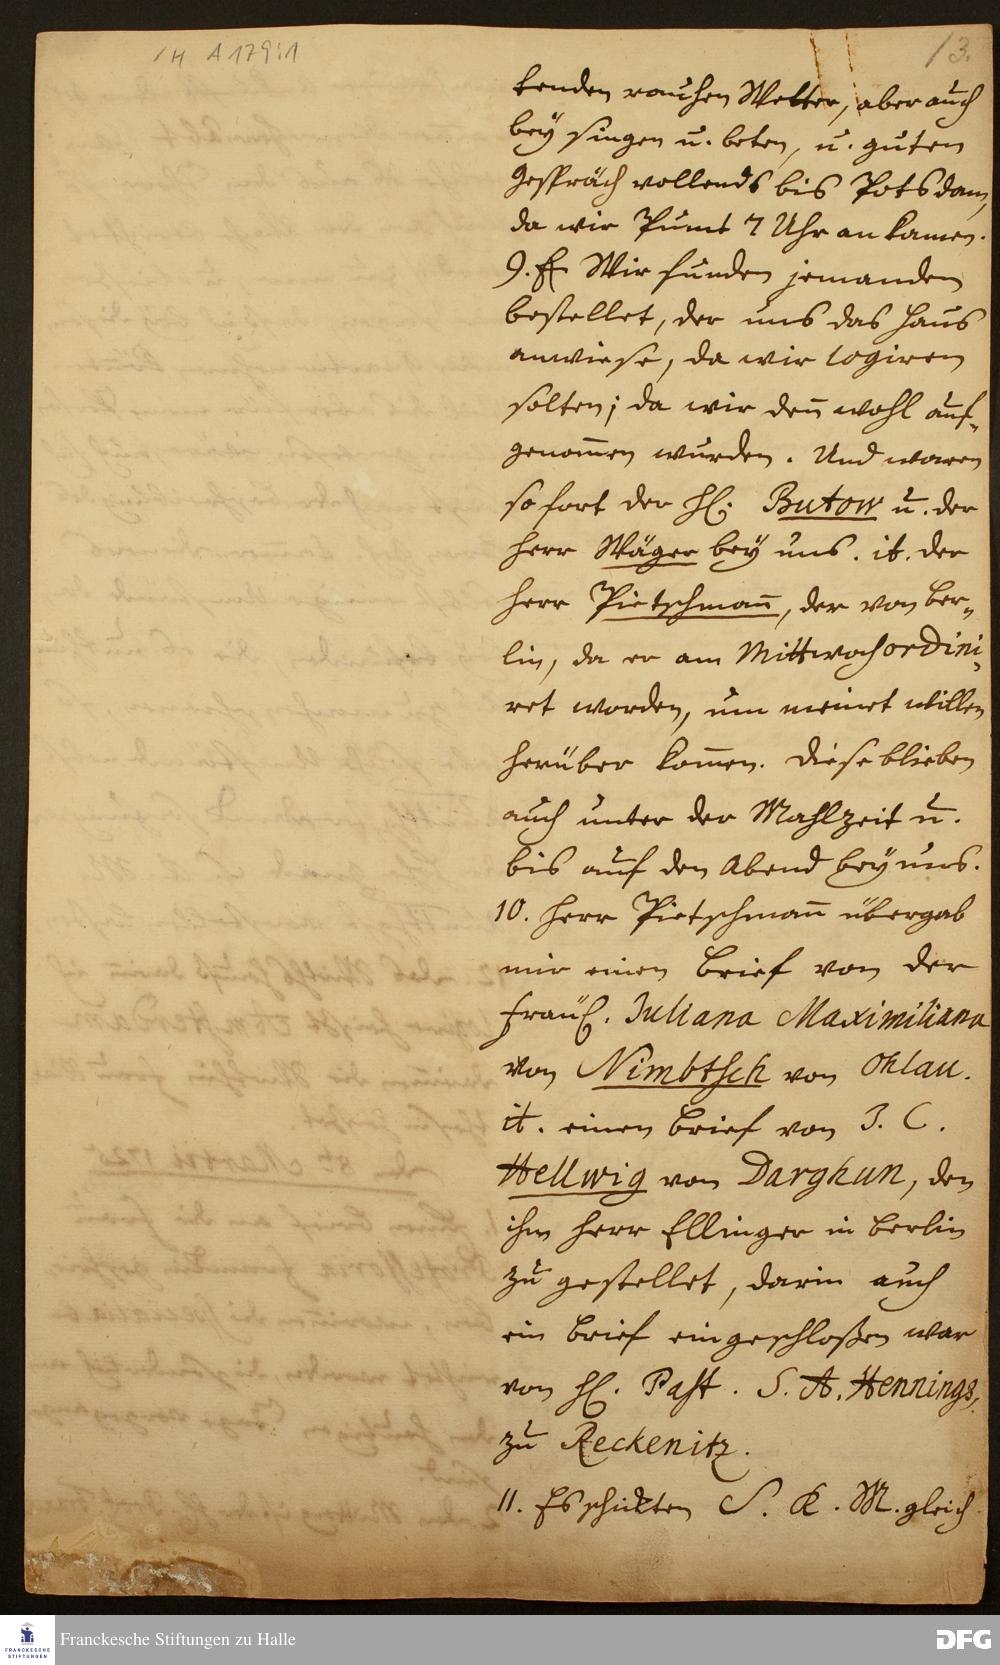 1H A 179:1
13.
kenden rauhen Wetter, aber auch
bey singen u. beten, u. guten
gespräch vollends bis Potsdam,
da wir Punct 7 Uhr an kamen.
9. Wir funden jemanden
bestellet, der uns das Haus
anwiese, da wir logiren
solten; da wir den̄ wohl auf-
genom̄en wurden. Und waren
so fort der H. Butow u. der
Herr Wäger bey uns. it. der
Herr Pietschman̄, der von Ber-
lin, da er am Mittwoch ordini-
ret worden, um meinet willen
herüber kom̄en. Diese blieben
auch unter der Mahlzeit u.
bis auf den Abend bey uns.
10. Herr Pietschman̄ übergab
mir einen Brief von der
Fräul. Juliana Maximiliana
von Nimbtsch von Ohlau.
it. einen Brief von J. C.
Hellwig von Darghun, den
ihm Herr Ellinger in Berlin
zu gestellet, darin auch
ein Brief eingeschloßen war
von H. Past. S. A. Hennings,
zu Reckenitz.
11. Es schickten S. K. M. gleich
FRANCKESCHE
STIFTUNGEN
Franckesche Stiftungen zu Halle
DFG